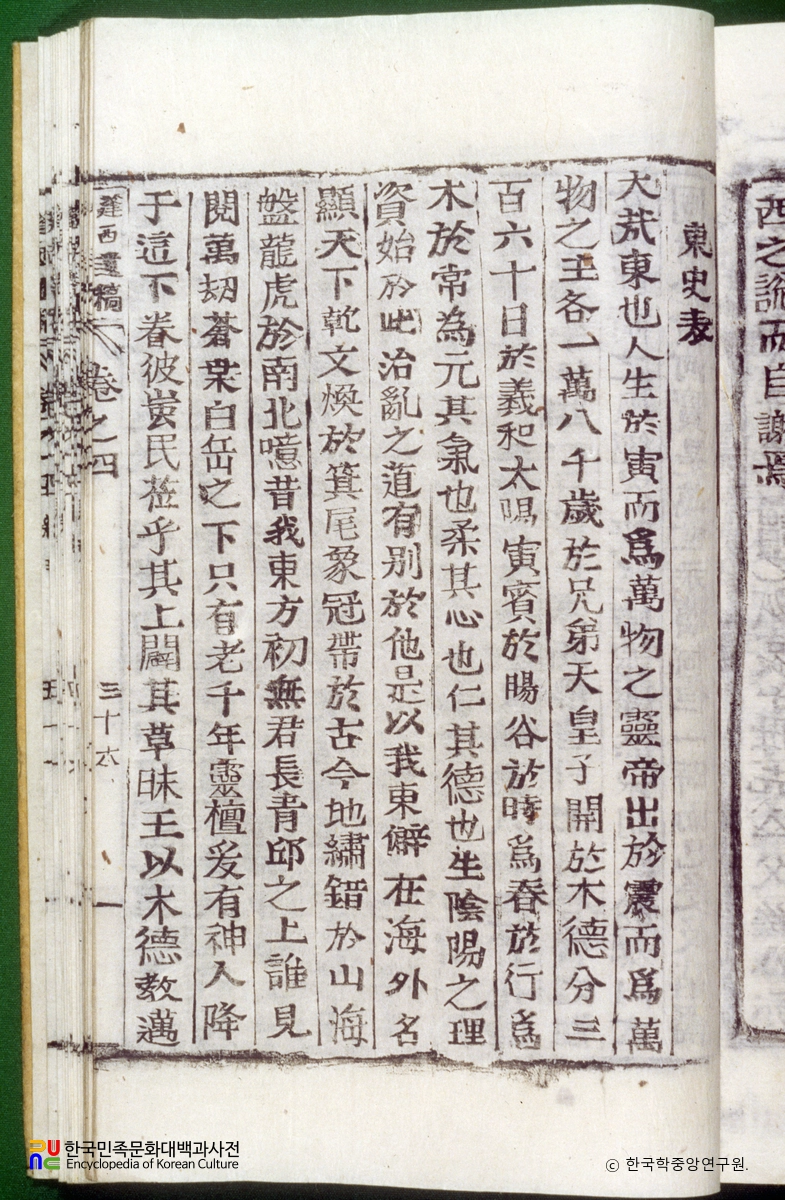 西之說而自謝焉
東史表
大哉東也人生於寅而爲萬物之靈帝出於震而爲萬
物之主各一萬八千歲於兄弟天皇子開於木德分三
百六十日於義和太陽寅賓於暘谷於時爲春於行爲
木於常為元其氣也柔其心也仁其德也生陰陽之理
資始於此治亂之道有别於他是以我東僻在海外名
顯天下乾文煥於箕尾象冠帶於古今地繡錯於山海
盤龍虎於南北噫昔我東方初無君長青邱之上誰見
閱萬刼蒼枼白岳之下只有老千年靈檀爰有神人降
于這下眷彼蚩民莅乎其上闢其草昧王以木德敎邁
西遺稿 卷之四 三十六
한국민족문화대백과사전
Encyclopedia of Korean Culture
ⓒ 한국학중앙연구원.